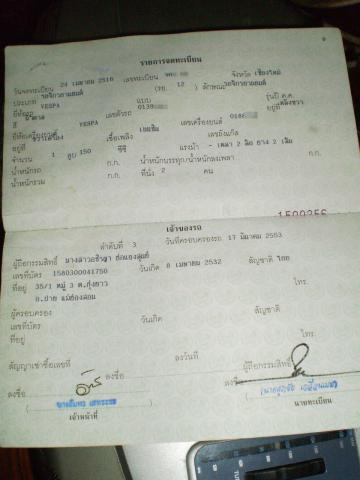 รายการจดทะเบียน
วันจดทะเบียน 24 เมษายน 2516 เลขทะเบียน จังหวัด เชียงใหม่
ประเภท รถจักรยานยนต์ (รย. 12 ) ลักษณะ รถจักรยานยนต์
ยี่ห้อรถ VESPA แบบ รุ่นปี ค.ศ.
สี ฟ้า VESPA เลขตัวรถ 0139 อยู่ที่
ยี่ห้อเครื่องยนต์ เลขเครื่องยนต์ 0186
อยู่ที่ เชื้อเพลิง เบนซิน เลขถังแก๊ส
จำนวน 1 สูบ 150 ซีซี แรงม้า - เพลา 2 ล้อ ยาง 2 เส้น
น้ำหนักรถ ก.ก. น้ำหนักบรรทุก/น้ำหนักลงเพลา ก.ก.
น้ำหนักรวม ก.ก. ที่นั่ง 2 คน
เจ้าของรถ
ลำดับที่ 3 วันที่ครอบครองรถ 17 มีนาคม 2553
ผู้ถือกรรมสิทธิ์ นางสาว
เลขที่บัตร 1580300041750 วันเกิด 8 เมษายน 2532 สัญชาติ ไทย
ที่อยู่ 35/1 หมู่ 3 ต.ทุ่งยาว โทร.
อ.ปาย แม่ฮ่องสอน
ผู้ครอบครอง
เลขที่บัตร วันเกิด สัญชาติ
ที่อยู่ โทร.
สัญญาเช่าซื้อเลขที่ ลงวันที่ ผู้ถือกรรมสิทธิ์
ลงชื่อ ลงชื่อ
เจ้าหน้าที่ นายทะเบียน